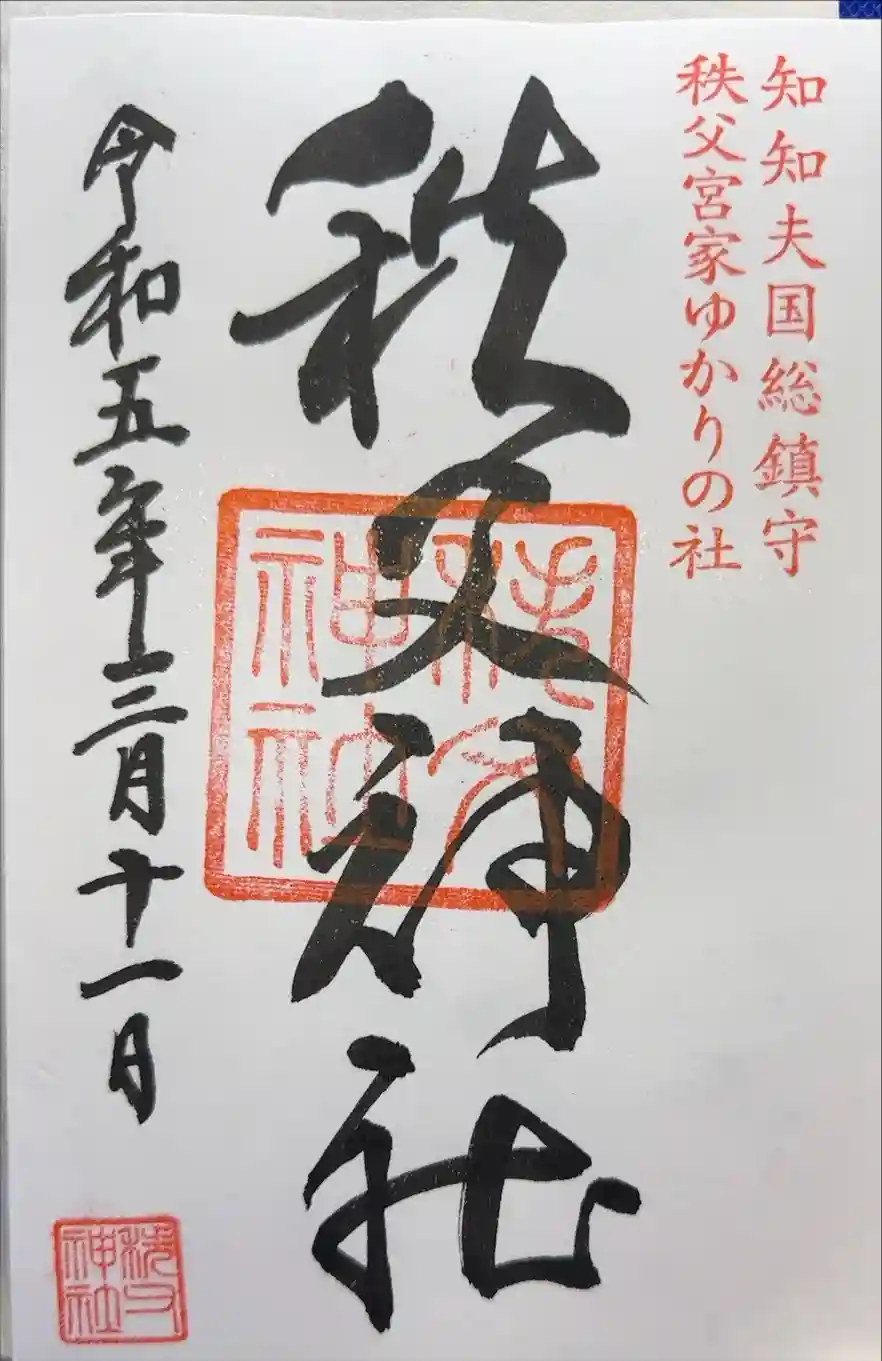 知知夫国総鎮守
秩父宮家ゆかりの社
秩父神社
令和五年三月十一日
秩父
神社
秩父
神社